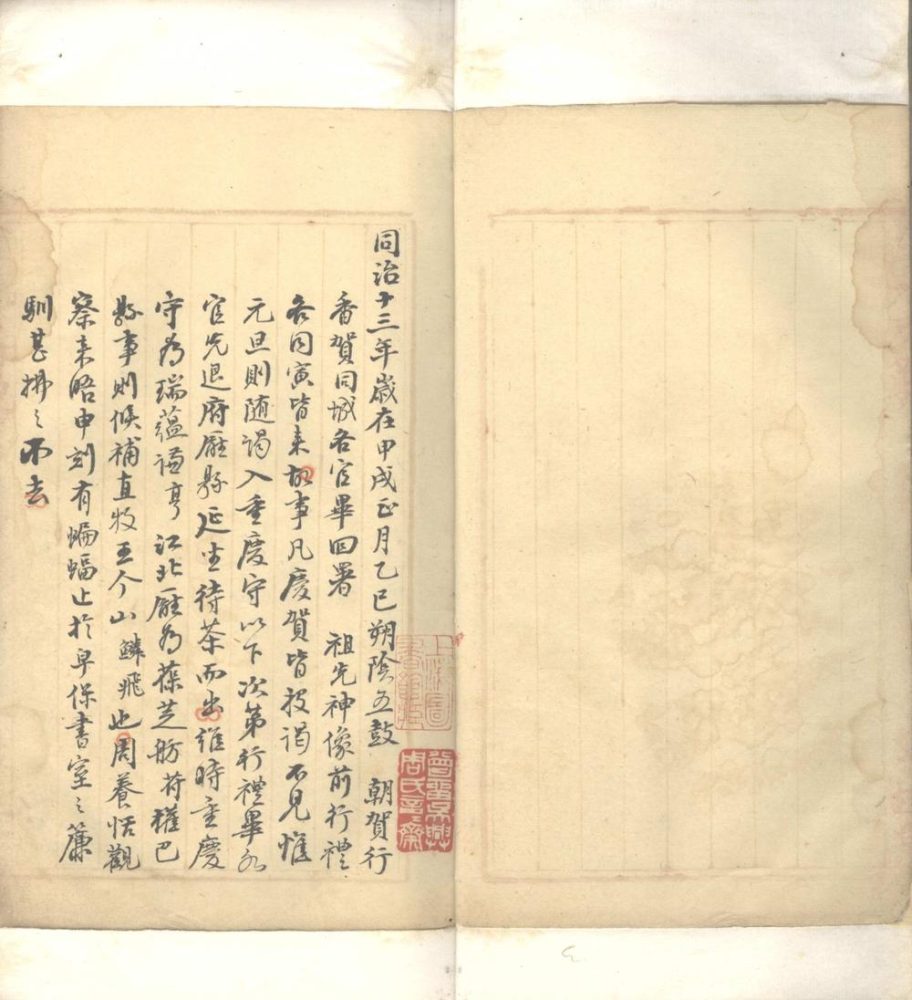 同治十三年歲在甲戌正月乙巳朔陰五鼓 朝賀行
香賀同城各官畢回署 祖先神像前行禮
各同寅皆來故事凡慶賀皆投謁不見惟
元旦則隨謁入重慶守以下次第行禮畢各
官先退府廳縣延坐待茶而出維時重慶
守為瑞蘊謙亨江北廳為葆芝舫符權巴
縣事則候補直牧王个山鱗飛也周養恬觀
察來晤申刻有蝙蝠止於早保書室之簾
馴甚拂之不去
上海圖書館藏
曾留吳興周氏言言齋